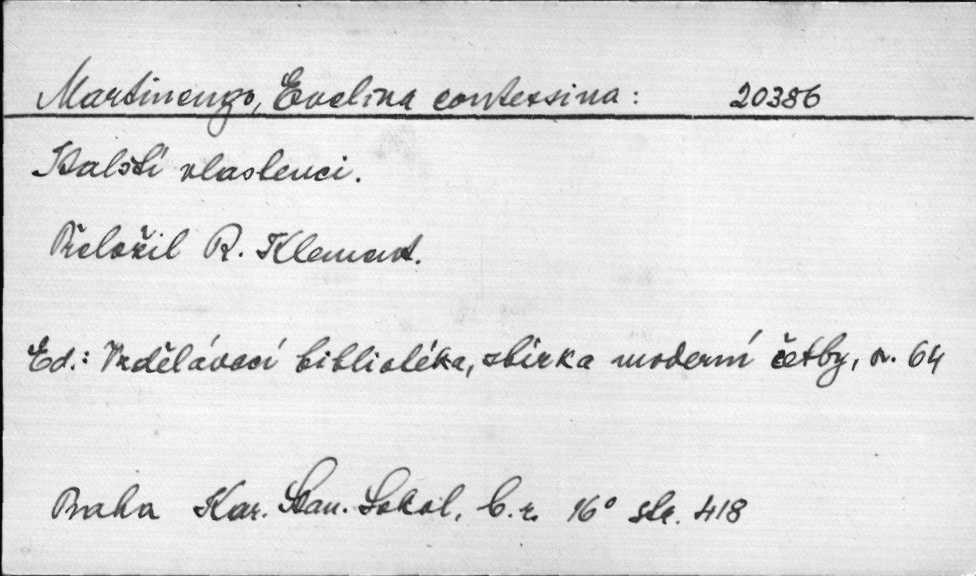 Martinengo, Evelina contessina: 20386
Italští vlastenci.
Přeložil R. Klement.
Ed.: Vzdělávací bibliotéka, sbírka moderní četby, sv. 64
Praha Kar. Stan. Sokol, b. r. 16° str. 418